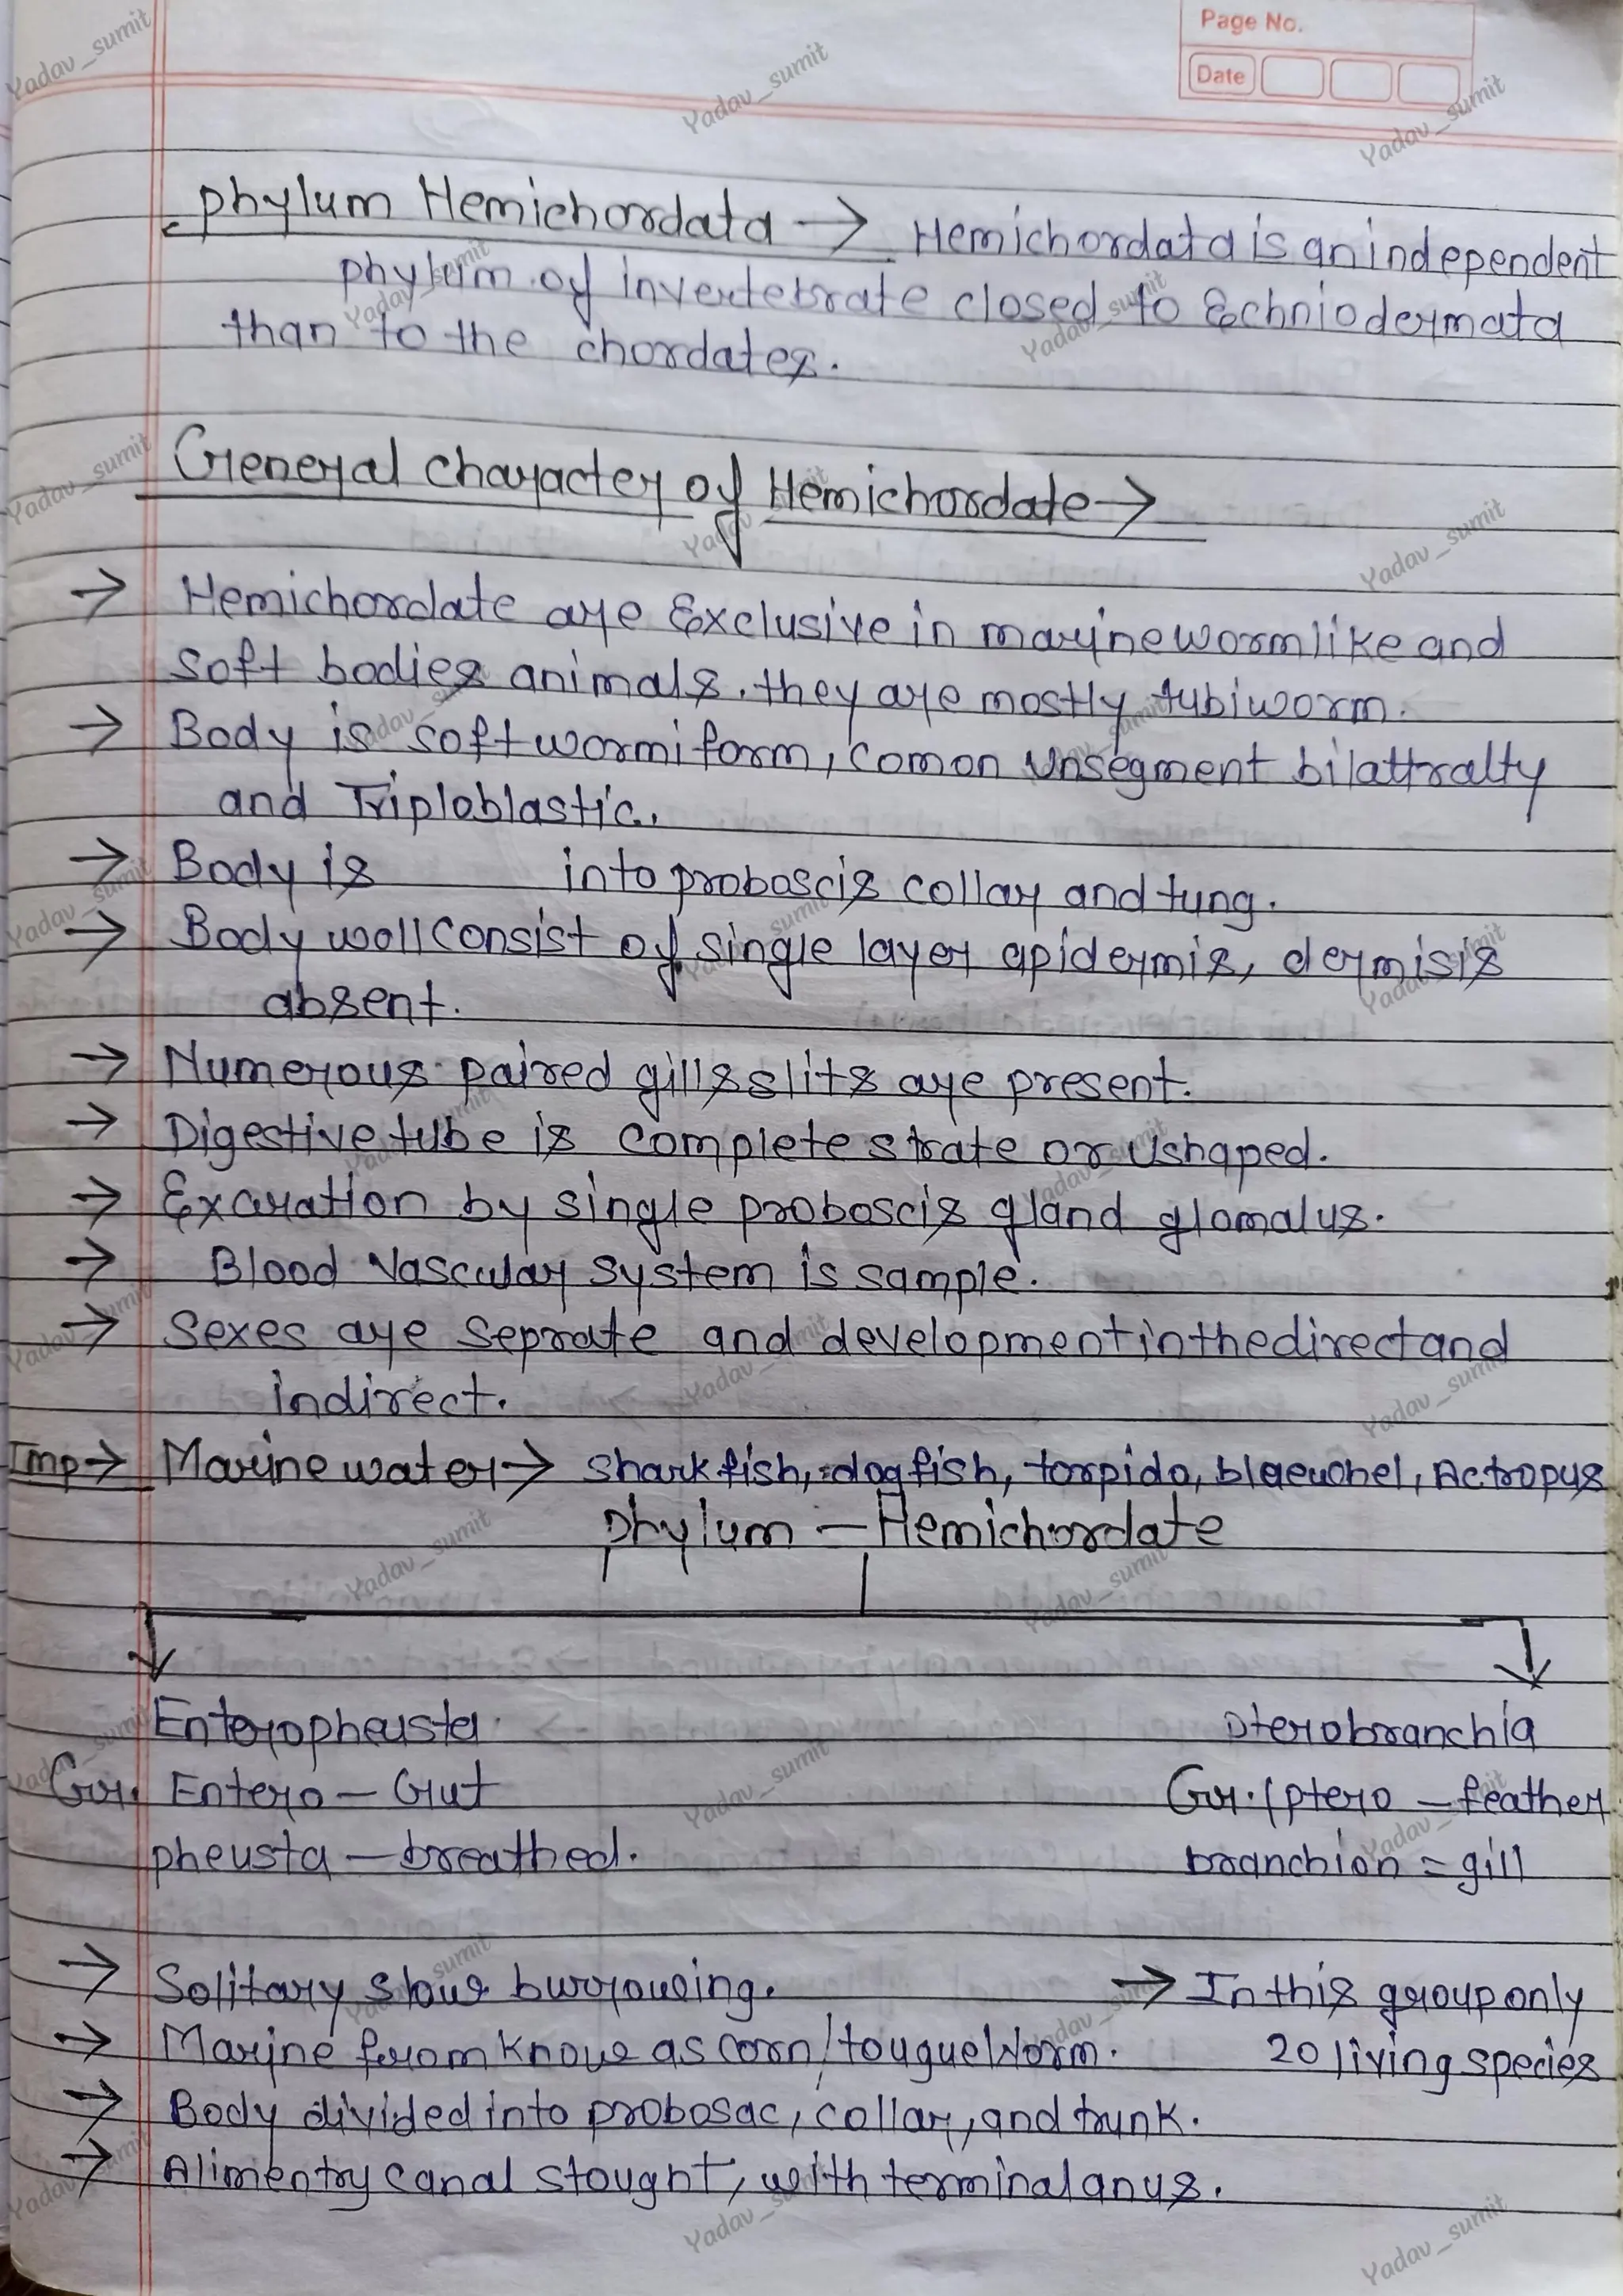 Page No.
Date
phylum Hemichordata → Hemichordata is an independent
phylum of invertebrate closed to Echniodermata
than to the chordates.
General character of Hemichordate →
→ Hemichordate are Exclusive in marine wormlike and
soft bodies animals. they are mostly tubiworm.
→ Body is soft wormiform, comon unsegment bilattralty
and Triploblastic.
→ Body is into proboscis collar and tung.
→ Body wall consist of single layer apidermis, dermis is
absent.
→ Numerous paired gills slits are present.
→ Digestive tube is complete strate or Ushaped.
→ Exaration by single proboscis gland glomalus.
→ Blood Vascular system is sample.
→ Sexes are seprate and development in the direct and
indirect.
Imp → Marine water → shark fish, dogfish, torpido, Actropus
phylum - Hemichordate
Enteropheusta pterobranchia
Gr. Entero - Gut Gr. (ptero - feather
pheusta - breathed. branchion = gill
→ Solitary slows burrowing. → In this group only
→ Marine from knows as corn/tougue Worm. 20 living species
→ Body divided into probosac, collar, and trunk.
→ Alimentry canal stought, with terminal anus.
Yadav_sumit